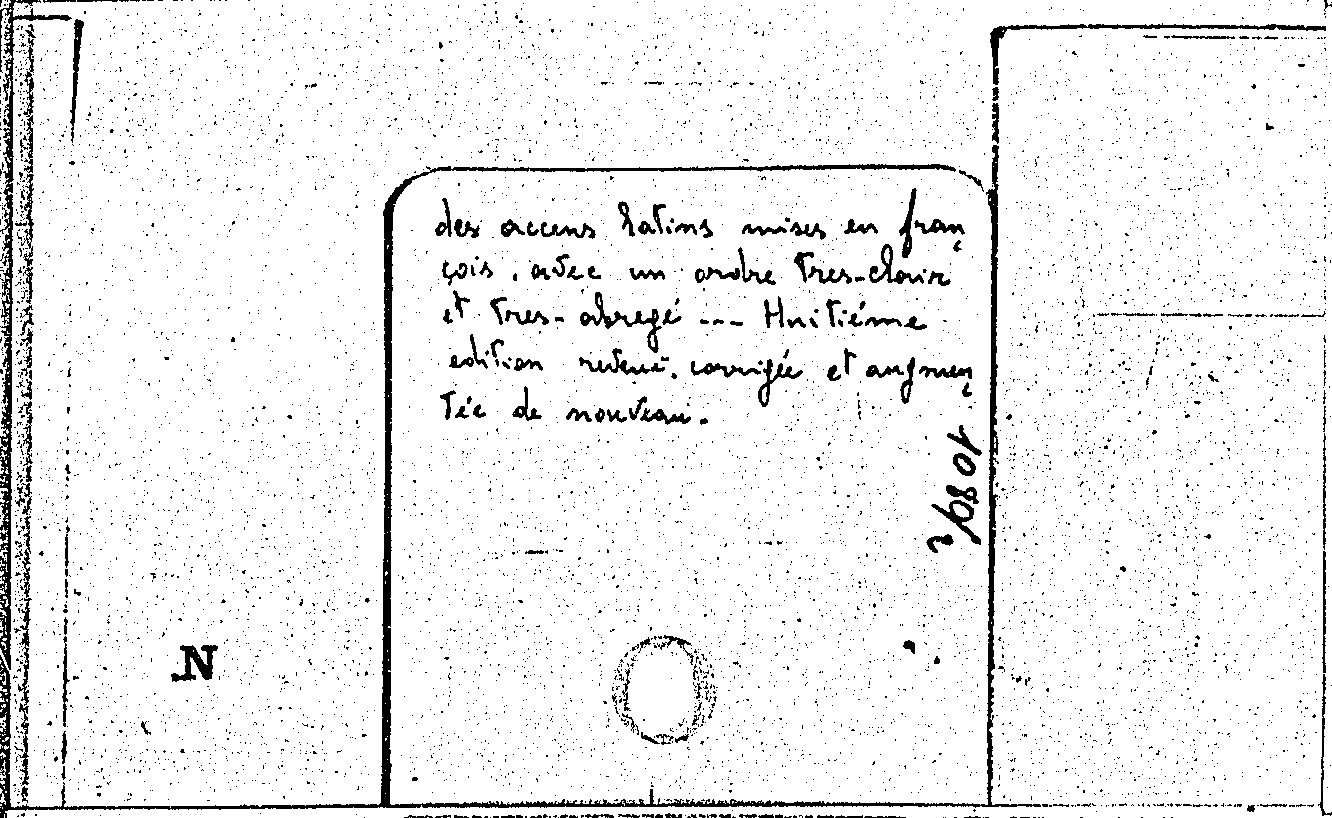 des accens latins mises en fran
çois, avec un ordre tres-clair
et tres-abregé --- Huitiéme
edition reveuë, corrigée et augmen
tée de nouveau.
N